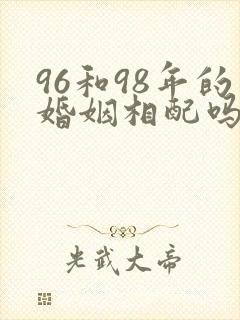 96和98年的
婚姻相配吗
光武大帝